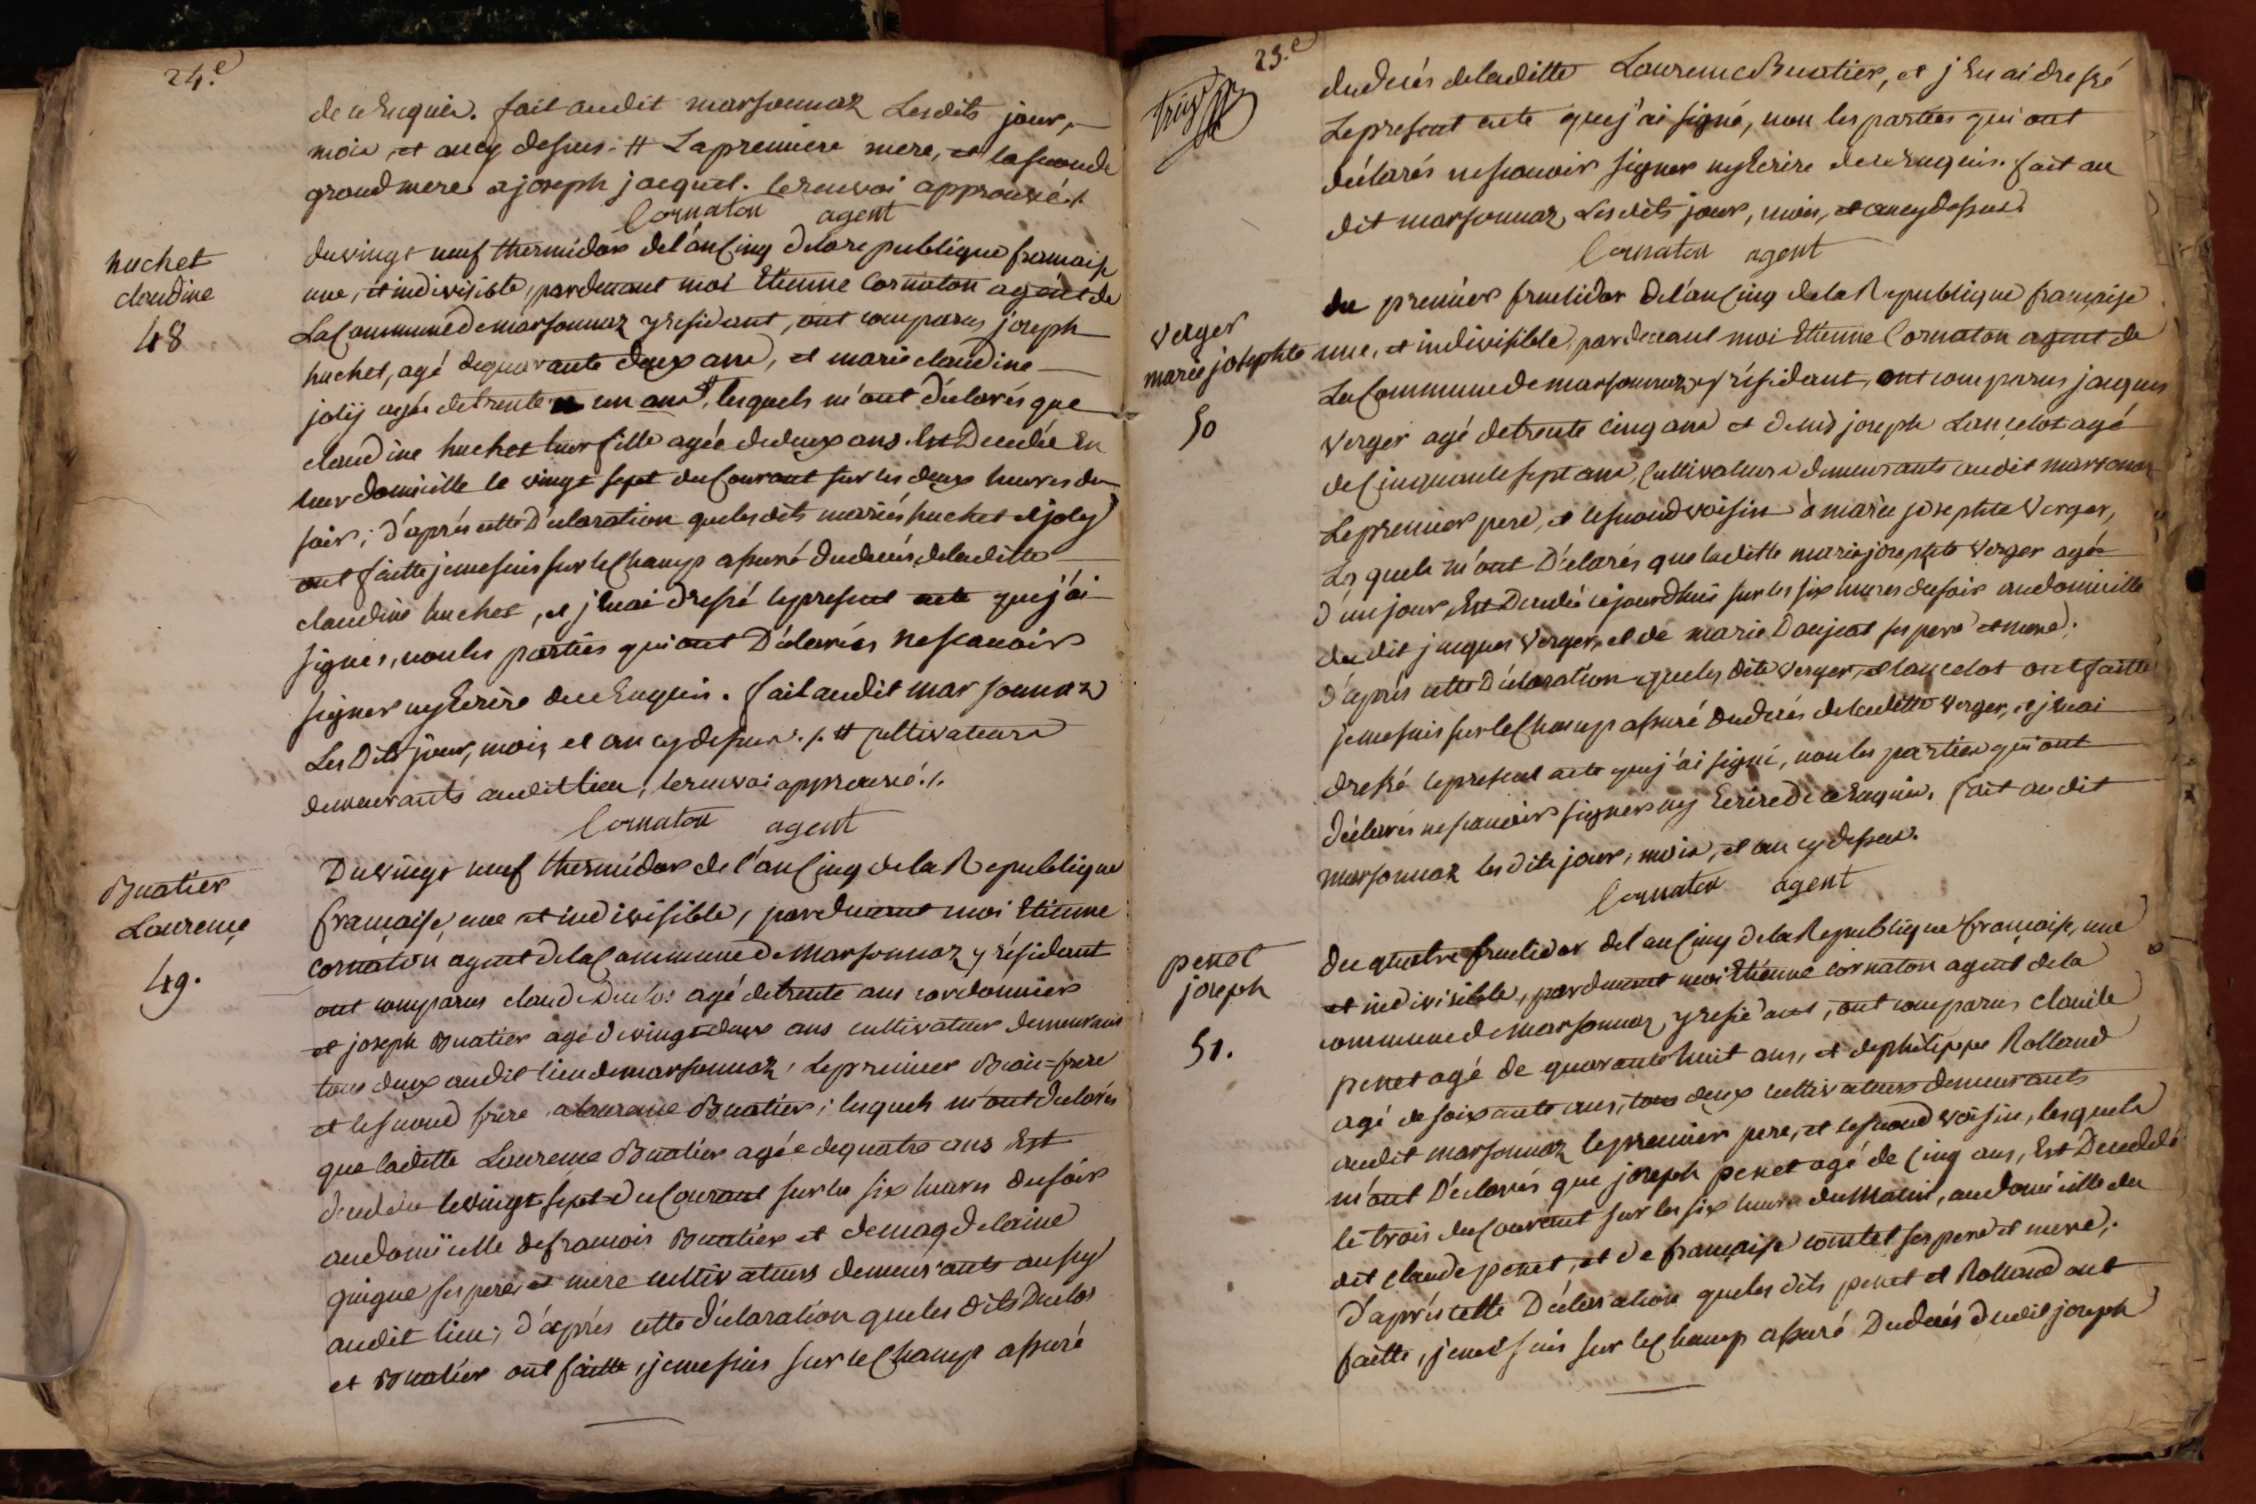 24.e
de ce Enquis. fait audit marsonnaz Lesdits jour,
mois, et an cy dessus. # La premiere mere, et la seconde
grand mere a joseph jacquet. le renvoi approuvé./.
Cornaton agent
huchet
claudine
48
du vingt neuf thermidor de l'an Cinq de la republique francaise
une, et indivisible, pardevant moi Etienne Cornaton agent de
La Commune de marsonnaz y residant, ont comparus joseph
huchet, agé de quarante deux ans, et marie claudine
joly agée de trente un ans #, lesquels m'ont déclarés que
claudine huchet leur fille agée de deux ans Est Decedée En
leur domicille le vingt sept du Courant sur les deux heures du
soir; d'aprés cette Déclaration que les dits mariés huchet et joly
ont faitte je me suis sur le Champ assuré du decés de laditte
claudine huchet, et j'En ai dressé le present acte que j'ai
signé, non les parties qui ont Déclarés ne scavoir
signer ny Ecrire de ce Enquis. fait audit marsonnaz
Les Dits jour, mois, et an cy dessus ./. # cultivateurs
demeurants audit lieu, le renvoi approuvé ./.
Cornaton agent
Buatier
Laurence
49.
Du vingt neuf thermidor de l'an Cinq de la Republique
francaise, une et indivisible, pardevant moi Etienne
Cornaton agent de la Commune de Marsonnaz y résidant
ont comparus claude Duclos agé de trente ans cordonnier
et joseph Buatier agé de vingt deux ans cultivateur demeurants
tous deux audit lieu de marsonnaz, Le premier Beau=frere
et le second frere a Laurence Buatier; lesquels m'ont declarés
que laditte Laurence Buatier agée de quatre ans Est
decedée le vingt sept du Courant sur les six heures du soir
au domicille de francois Buatier et de magdelaine
guigue ses pere, et mere cultivateurs demeurants aussy
audit lieu; d'aprés cette déclaration que les dits Duclos
et Buatier ont faitte, je me suis sur le Champ assuré
25.e
du Decés de laditte Laurence Buatier, et j'En ai dressé
Le present acte que j'ai signé, non les parties qui ont
déclarés ne scavoir signer ny Ecrire de ce Enquis. fait au
dit marsonnaz, Les dits jour, mois, et an cy dessus.
Cornaton agent
Verger
marie josephte
50
du premier fructidor de l'an Cinq de la Republique francaise
une, et indivisible, pardevant moi Etienne Cornaton agent de
La Commune de marsonnaz y résidant, ont comparus jacques
Verger agé de trente cinq ans et joseph Lancelot agé
de Cinquante sept ans, Cultivateurs demeurants audit marsonnaz
Le premier pere, et le second voisin à marie josephte Verger,
Lesquels m'ont Déclarés que laditte marie josephte Verger agée
d'un jour Est Decedée cejourd'huis sur les six heures du soir au domicille
dudit jacques Verger, et de marie Danjeat ses pere et mere;
d'aprés cette Déclaration que les dits Verger, et lancelot ont faitte
je me suis sur le Champ assuré du decés de laditte Verger, et j'En ai
dressé le present acte que j'ai signé, non les parties qui ont
Déclarés ne scavoir signer ny Ecrire de ce Enquis. fait audit
marsonnaz les dits jour, mois, et an cy dessus.
Cornaton agent
penet
joseph
51.
du quatre fructidor de l'an Cinq de la Republique francaise, une
et indivisible, pardevant moi Etienne Cornaton agent de la
commune de Marsonnaz y residant, ont comparus claude
penet agé de quarante huit ans, et philippe Rolland
agé de soixante ans, tous deux cultivateurs demeurants
audit marsonnaz le premier pere, et le second voisin, lesquels
m'ont Déclarés que joseph penet agé de Cinq ans, Est Decedé
le trois du Courant sur les six heures du Matin, au domicille du
dit claude penet, et de francaise comtet ses pere et mere;
d'aprés cette Déclaration que les dits penet et Rolland ont
faitte, je me suis sur le Champ assuré Du decés dudit joseph